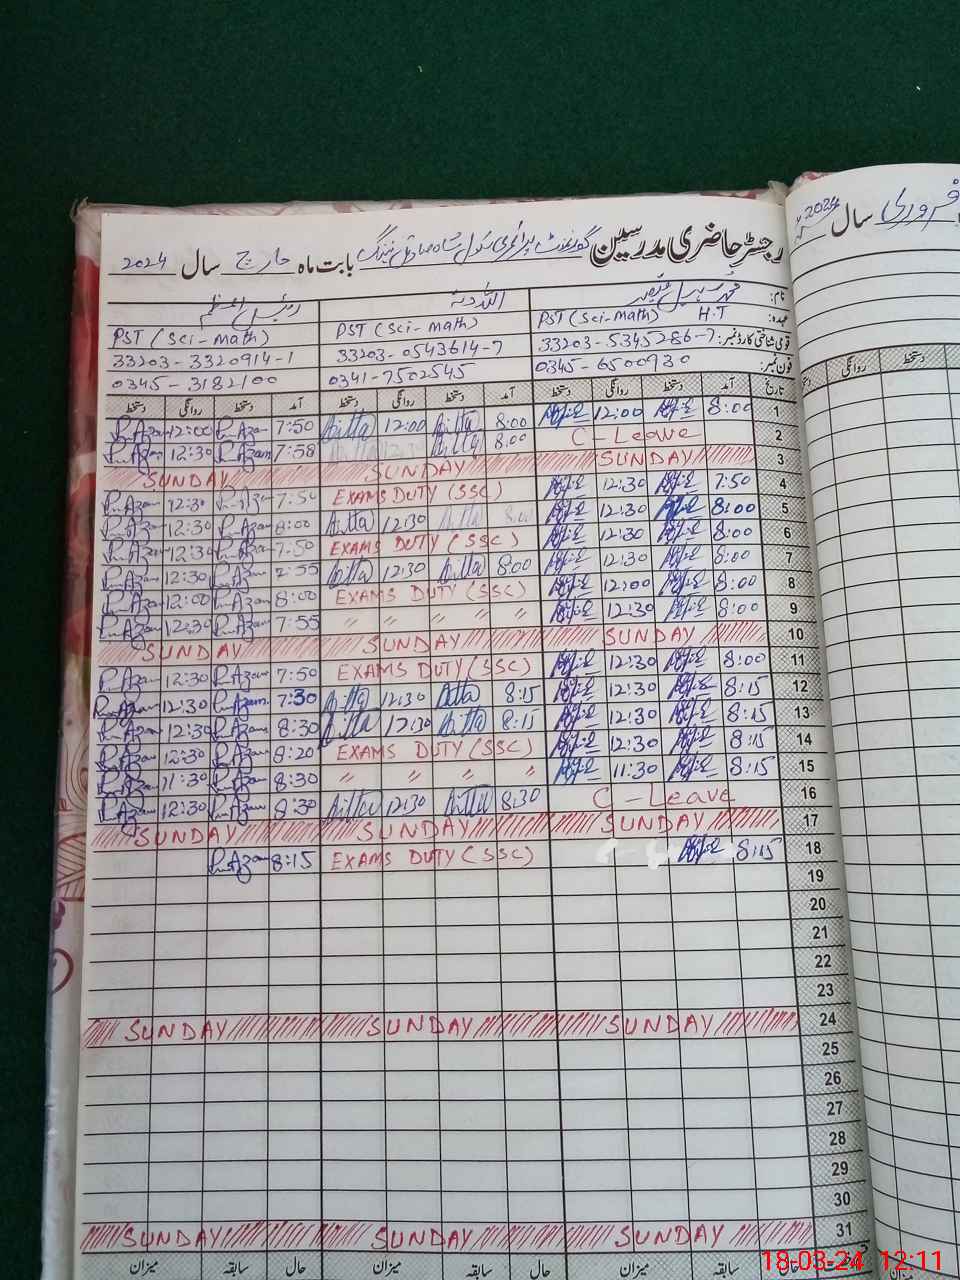 رجسٹر حاضری مدرسین گورنمنٹ پرائمری سکول بابت ماہ مارچ سال 2024
نام: محمد سہیل قیصر اللہ دتہ رئیس اعظم
عہدہ: PST (Sci-math) H.T PST (Sci-math) PST (Sci-math)
قومی شناختی کارڈ نمبر: 33203-5345286-7 33203-0543614-7 33203-3320914-1
فون نمبر: 0345-6500930 0341-7502545 0345-3182100
تاریخ آمد دستخط روانگی دستخط آمد دستخط روانگی دستخط آمد دستخط روانگی دستخط
1 8:00 12:00 8:00 Aitta 12:00 Aitta 7:50 R.Azam 12:00 R.Azam
2 C-Leave 8:00 Aitta 12:30 Aitta 7:58 R.Azam 12:30 R.Azam
3 SUNDAY SUNDAY SUNDAY
4 7:50 12:30 EXAMS DUTY (SSC) 7:50 R.Azam 12:30 R.Azam
5 8:00 12:30 8:00 Aitta 12:30 Aitta 8:00 R.Azam 12:30 R.Azam
6 8:00 12:30 EXAMS DUTY (SSC) 7:50 R.Azam 12:30 R.Azam
7 8:00 12:30 8:00 Aitta 12:30 Aitta 7:55 R.Azam 12:30 R.Azam
8 8:00 12:00 EXAMS DUTY (SSC) 8:00 R.Azam 12:00 R.Azam
9 8:00 12:30 〃 〃 〃 〃 7:55 R.Azam 12:30 R.Azam
10 SUNDAY SUNDAY SUNDAY
11 8:00 12:30 EXAMS DUTY (SSC) 7:50 R.Azam 12:30 R.Azam
12 8:15 12:30 8:15 Aitta 12:30 Aitta 7:30 R.Azam 12:30 R.Azam
13 8:15 12:30 8:15 Aitta 12:30 Aitta 8:30 R.Azam 12:30 R.Azam
14 8:15 12:30 EXAMS DUTY (SSC) 8:20 R.Azam 12:30 R.Azam
15 8:15 11:30 〃 〃 〃 〃 8:30 R.Azam 11:30 R.Azam
16 C-Leave 8:30 Aitta 12:30 Aitta 8:30 R.Azam 12:30 R.Azam
17 SUNDAY SUNDAY SUNDAY
18 8:15 EXAMS DUTY (SSC) 8:15 R.Azam
19
20
21
22
23
24 SUNDAY SUNDAY SUNDAY
25
26
27
28
29
30
31 SUNDAY SUNDAY SUNDAY
حال سابقہ میزان حال سابقہ میزان حال سابقہ میزان
فروری سال 2024
دستخط روانگی
18-03-24 12:11